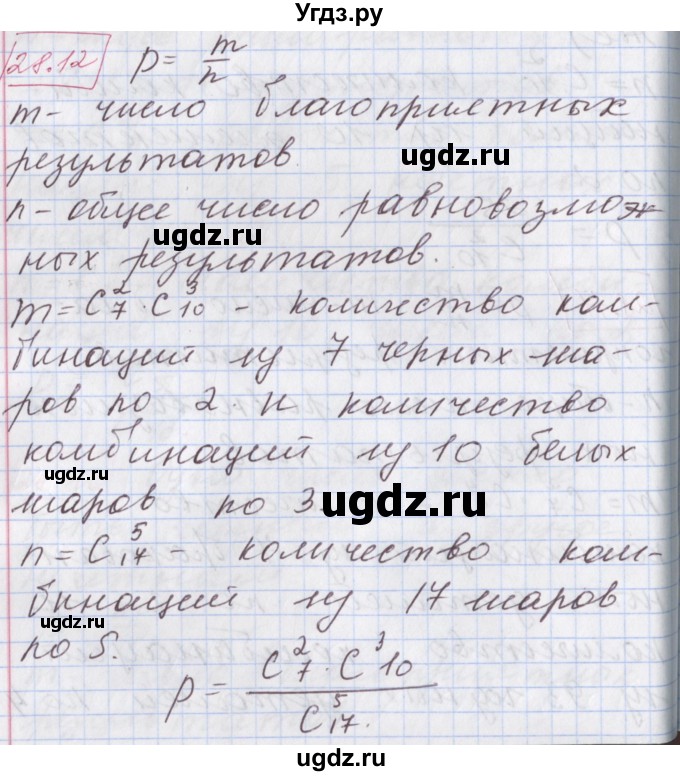 Угдз.ру
28.12 p = m/n
m - число благоприятных
результатов.
ugdz.ru
n - общее число равновозмож
ugdz.ru
ных результатов.
m = C₇² · C₁₀³ - количество ком-
бинаций из 7 черных ша-
ров по 2 и количество
комбинаций из 10 белых
ugdz.ru
шаров по 3.
ugdz.ru
n = C₁₇⁵ - количество ком-
бинаций из 17 шаров
ugdz.ru
по 5.
p = C₇² · C₁₀³ / C₁₇⁵.
ugdz.ru
ugdz.ru